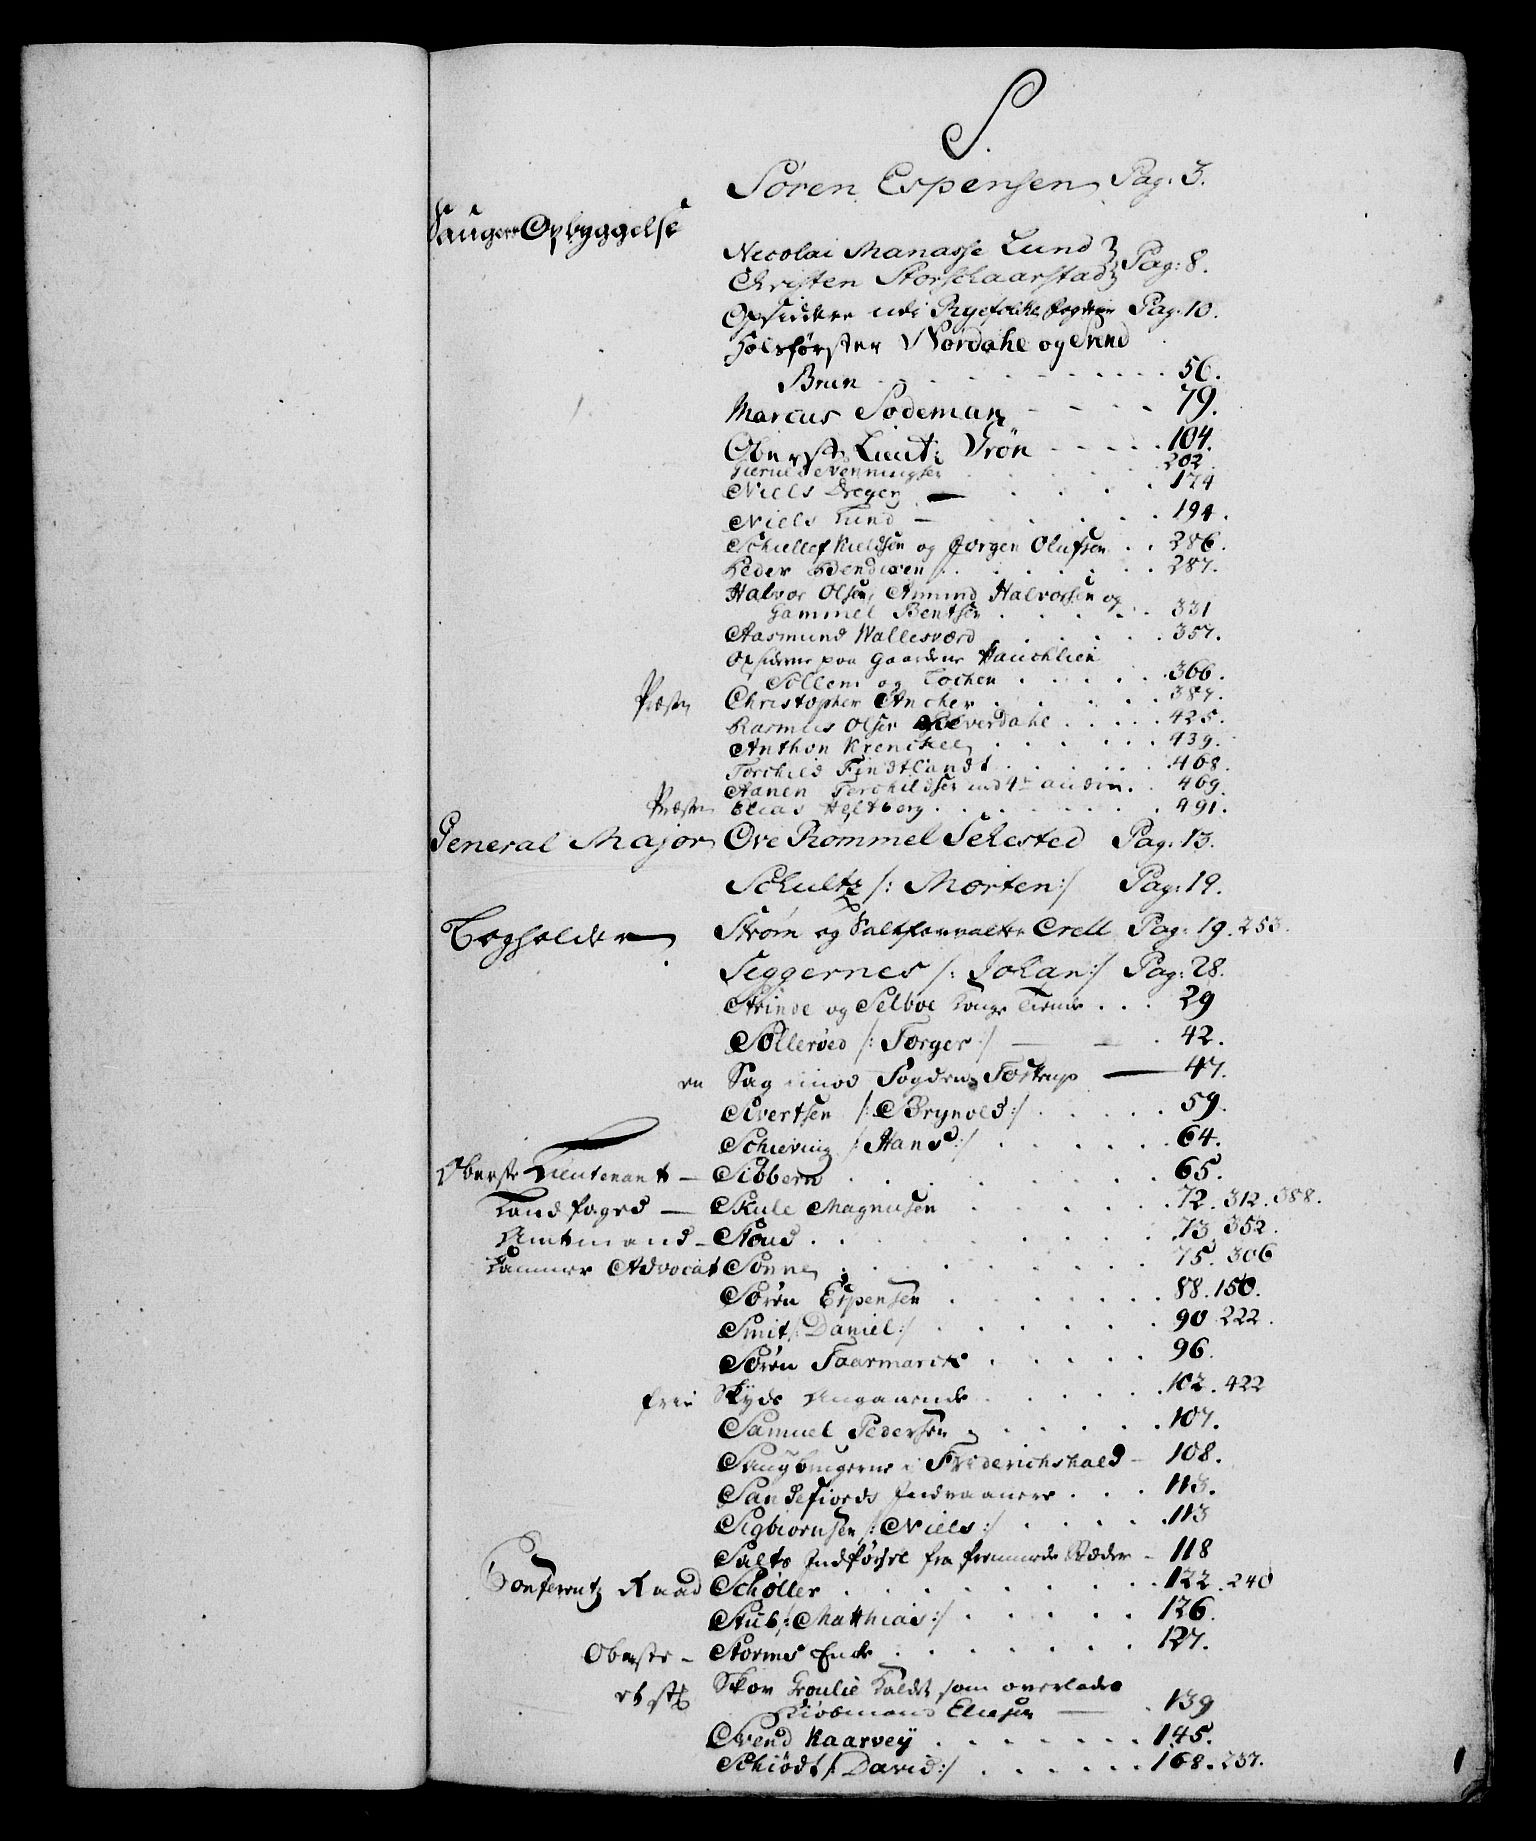 S.
Søren Espensen Pag: 3.
Saugers Opbyggelse
Nicolai Manasse Lund
Christen Storschaarstad Pag: 8.
Opsiddere udi Ryefolke fogderie Pag: 10.
Holtzførster Nordahl og
Brun 56.
Marcus Sodeman 79.
Oberst Lieut: Frøn 104.
Henningsen 202
Niels Dreyer 174
Niels Lund 194.
Schiellef Kieldsen og Jørgen Olufsen 286.
Peder Hendicsen 287.
Halvor Olsen, Amund Halvorsen og
Gammel Bentsen 331
Aasmund Wallesværd 357.
Opsiderne paa Gaardene Hauchlien
Sollem og Lochen 366.
Præsten Christopher Ancher 387.
Rasmus Olsen Helverdahl 425.
Anthon Krenckel 439.
Torchild Findtlandt 468.
Aanen Torchildsen med 4re andre 469.
Præsten Elias Heltberg 491.
General Major Ove Rommel Sehested Pag: 13.
Schultz /: Morten:/ Pag: 19.
Bogholder Strøm og Saltforvalter Crell Pag: 19. 253.
Seggernes /: Johan:/ Pag: 28.
Strinde og Selboe Konge Tiende 29
Søllerøed /: Torger:/ 42.
en Sag imod Fogden Tostrup 47.
Sivertsen /: Brynold:/ 59.
Schieving /: Hans:/ 64.
Oberste Lieutenant – Sibbern 65.
Landfoged – Skule Magnusen 72. 312. 388.
Amtmand – Stoud 73. 352.
Kammer Advocat Sonne 75. 306
Søren Espensen 88. 150.
Smit /: Daniel:/ 90. 222.
Søren Faarmarck 96.
frie Skyds Angaaende 102. 422
Samuel Pedersen 107.
Saugbrugerne i Friderichshald 108.
Sandefiords Indvaanere 113.
Sigbiørnsen /: Niels:/ 113
Salts Indførsel fra fremmede Stæder 118
Conferentz Raad Schøller 122. 240
Stub /: Matthias:/ 126.
Oberste – Storms Enke 127.
et st: Skov Groulie Kaldet som overlades
Kiøbmand Eliesen 139
Svend Kaarvey 145.
Schiødt /: David:/ 168. 237.
1